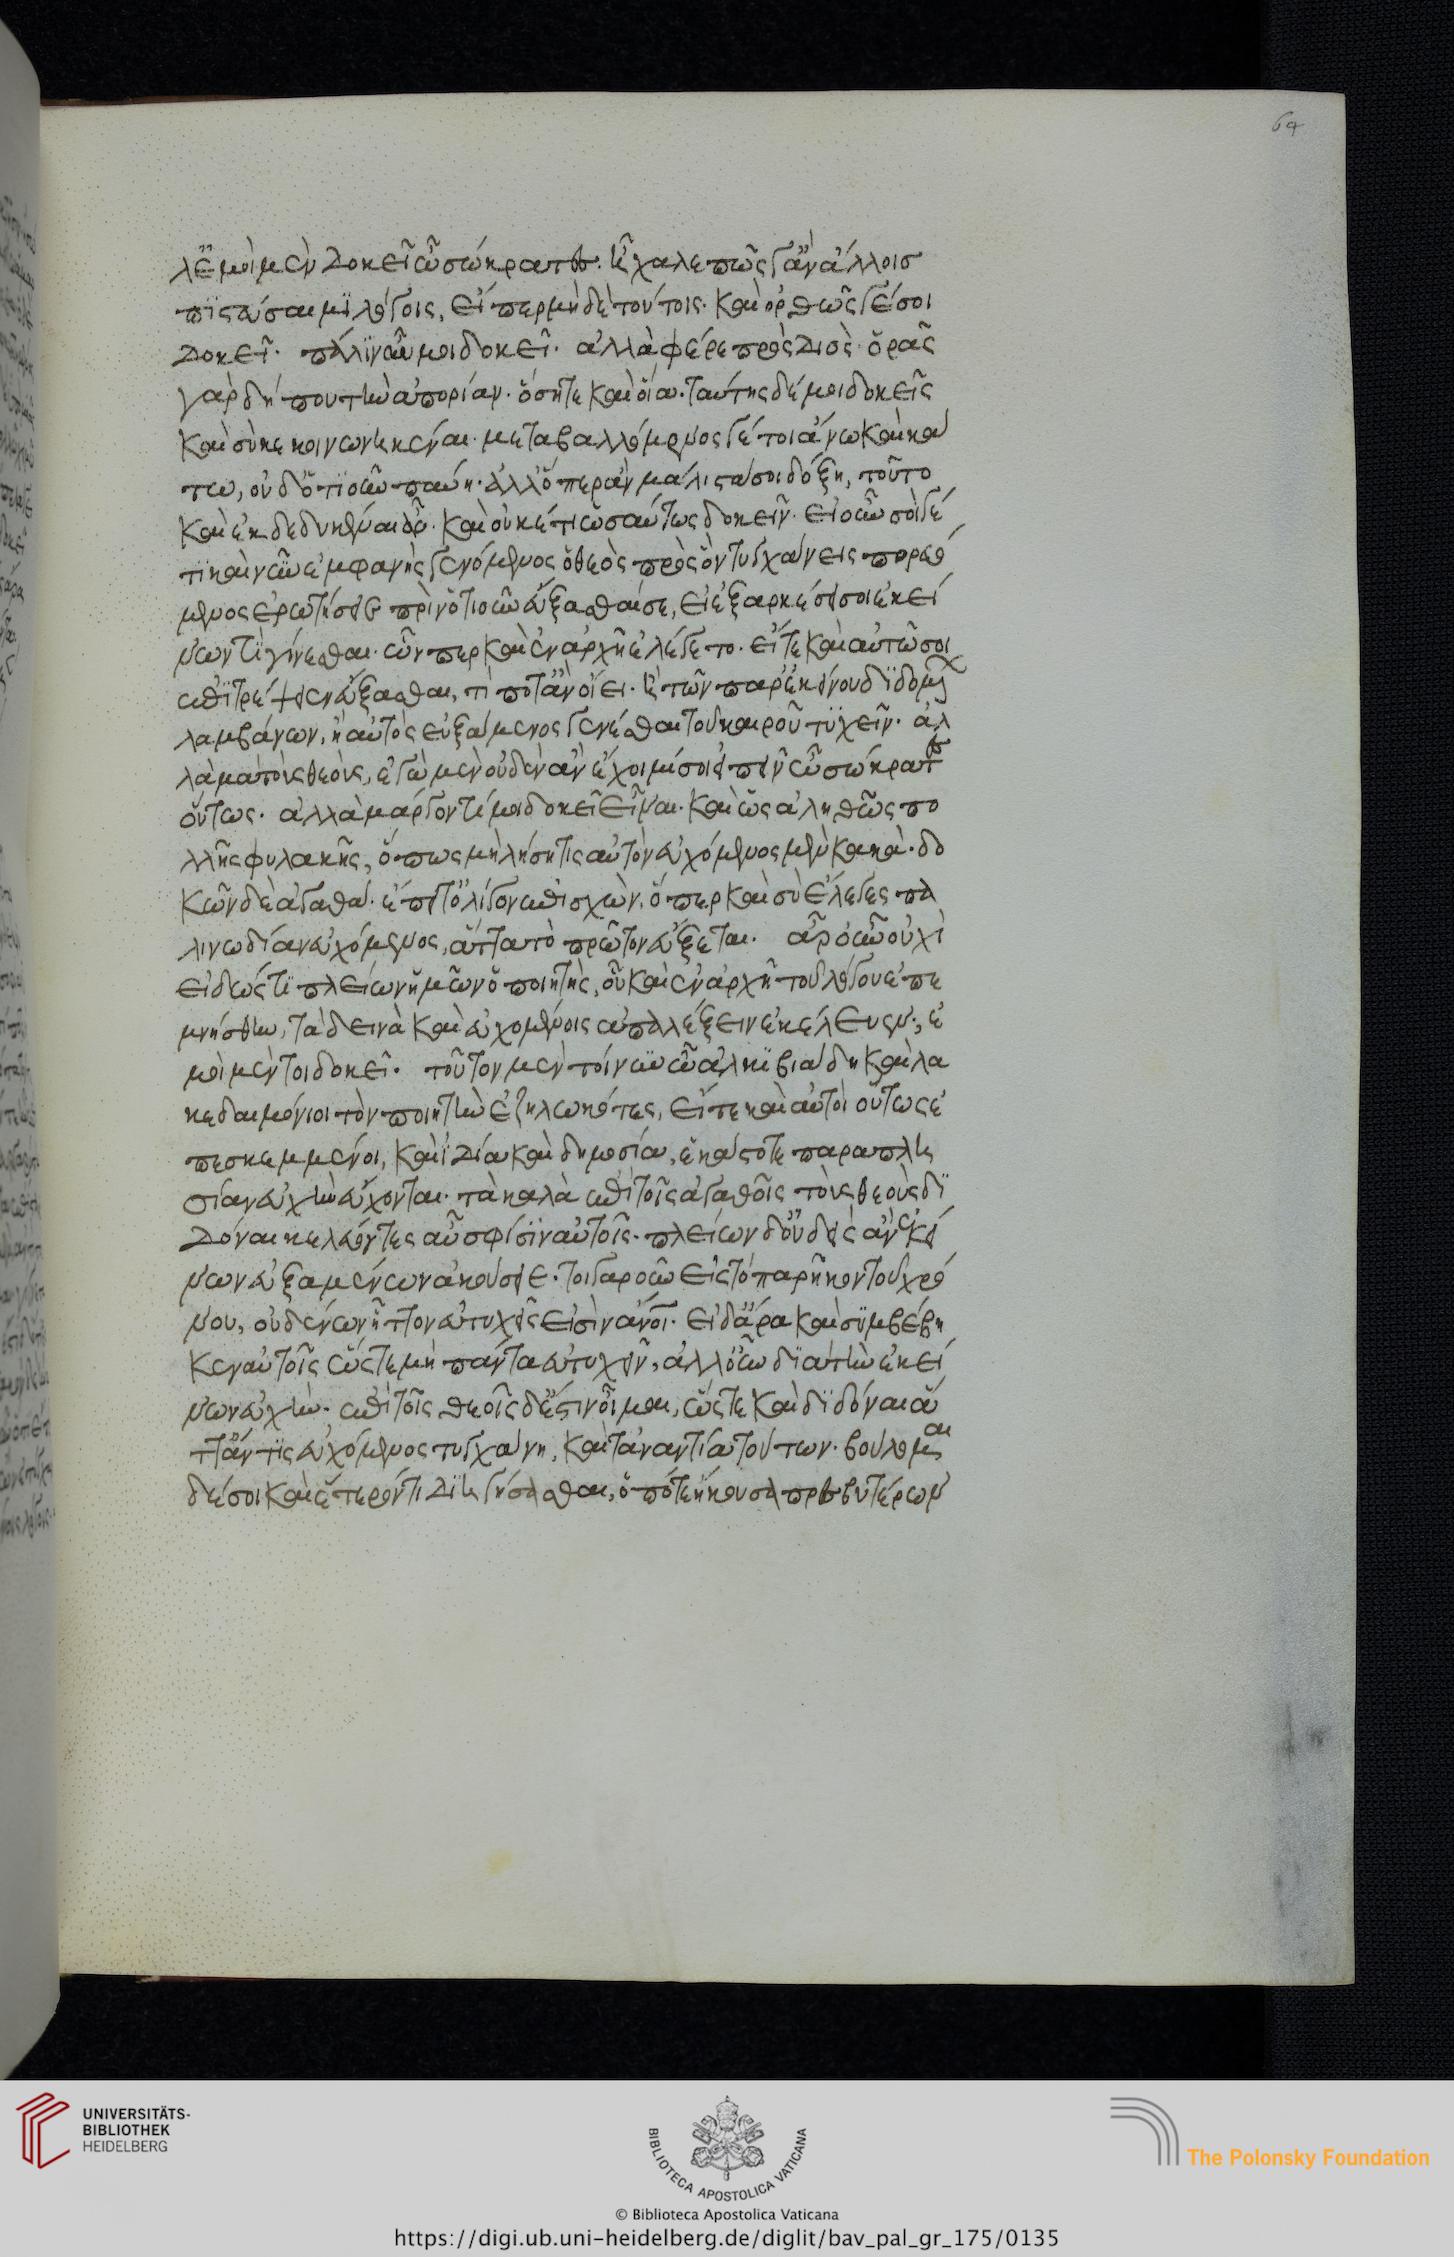 λέ μοὶ μὲν δοκεῖ ὦ σώκρατες. ἦ χαλεπῶς γ' ἂν ἄλλοισ
πιστεύσαιμι λόγοις, εἴπερ μηδὲ τούτοις. καὶ ὀρθῶς γέ σοι
δοκεῖ. πάλιν αὖ μοι δοκεῖ. ἀλλὰ φέρε πρὸς Διὸς. ὁρᾶς
γὰρ δή που τὴν ἀπορίαν. ὅση τε καὶ οἵα. ταύτης δέ μοι δοκεῖς
καὶ σὺ κεκοινωνηκέναι. μεταβαλλόμενος γέ τοι ἄνω καὶ κά
τω, οὐδ' ὁτιοῦν παύη. ἀλλ' ὅπερ ἂν μάλιστά σοι δόξη, τοῦτο
καὶ ἐκδεδυκέναι αὖ. καὶ οὐκέτι ὡσαύτως δοκεῖν. εἰ οὖν σοὶ γέ
τι καὶ νῦν ἐμφανὴς γενόμενος ὁ θεὸς πρὸς ὃν τυγχάνεις πορευό
μενος ἐρωτήσειε πρὶν ὁτιοῦν εὔξασθαί σε, εἰ ἐξαρκέσει σοι ἐκεί
νων τὶ γίνεσθαι. ὧν περ καὶ ἐν ἀρχῆ ἐλέγετο. εἴτε καὶ αὐτῶ σοι
ἐπιτρέψειεν εὔξασθαι, τί ποτ' ἂν οἴει. ἢ τῶν παρ' ἐκείνου διδομένων
λαμβάνων, ἢ αὐτὸς εὐξάμενος γενέσθαι τοῦ καιροῦ τυχεῖν. ἀλ
λὰ μὰ τοὺς θεοὺς, ἐγὼ μὲν οὐδὲν ἂν ἔχοιμί σοι εἰπεῖν ὦ σώκρατες
οὕτως. ἀλλὰ μάργον τί μοι δοκεῖ εἶναι. καὶ ὡς ἀληθῶς πο
λλῆς φυλακῆς, ὅπως μὴ λήση τις αὑτὸν εὐχόμενος μὲν κακὰ. δο
κῶν δὲ ἀγαθά. ἔπειτ' ὀλίγον ἐπισχὼν, ὅπερ καὶ σὺ ἔλεγες πα
λινωδίαν εὐχόμενος, ἅττα τὸ πρῶτον εὔξεται. ἆρ' οὖν οὐχὶ
εἰδώς τι πλείων ἡμῶν ὁ ποιητὴς, οὗ καὶ ἐν ἀρχῆ τοῦ λόγου ἐπε
μνήσθην, τὰ δεινὰ καὶ εὐχομένοις ἀπαλέξειν ἐκέλευεν; ἐ
μοὶ μέντοι δοκεῖ. τοῦτον μὲν τοίνυν ὦ ἀλκιβιάδη καὶ λα
κεδαιμόνιοι τὸν ποιητὴν ἐζηλωκότες, εἴτε καὶ αὐτοὶ οὕτως ἐ
πεσκεμμένοι, καὶ ἰδία καὶ δημοσία, ἑκάστοτε παραπλη
σίαν εὐχὴν εὔχονται. τὰ καλὰ ἐπὶ τοῖς ἀγαθοῖς τοὺς θεοὺς δι
δόναι κελεύοντες αὖ σφίσιν αὐτοῖς. πλείων δ' οὐδεὶς ἂν ἐκεί
νων εὐξαμένων ἀκούσειε. τοιγαροῦν εἰς τὸ παρῆκον τοῦ χρό
νου, οὐδένων ἧττον εὐτυχεῖς εἰσὶν ἄνοι. εἰ δ' ἄρα καὶ συμβέβη
κεν αὐτοῖς ὥστε μὴ πάντα εὐτυχεῖν, ἀλλ' οὖν διὰ τὴν ἐκεί
νων εὐχὴν. ἐπὶ τοῖς θεοῖς δέ ἐστιν οἶμαι, ὥστε καὶ διδόναι ἅ
ττ' ἄν τις εὐχόμενος τυγχάνη, καὶ τἀναντία τούτων. βούλομαι
δέ σοι καὶ ἕτερόν τι διηγήσασθαι, ὅ ποτε ἤκουσα πρεσβυτέρων
64
UNIVERSITÄTS-
BIBLIOTHEK
HEIDELBERG
BIBLIOTECA APOSTOLICA VATICANA
© Biblioteca Apostolica Vaticana
The Polonsky Foundation
https://digi.ub.uni-heidelberg.de/diglit/bav_pal_gr_175/0135